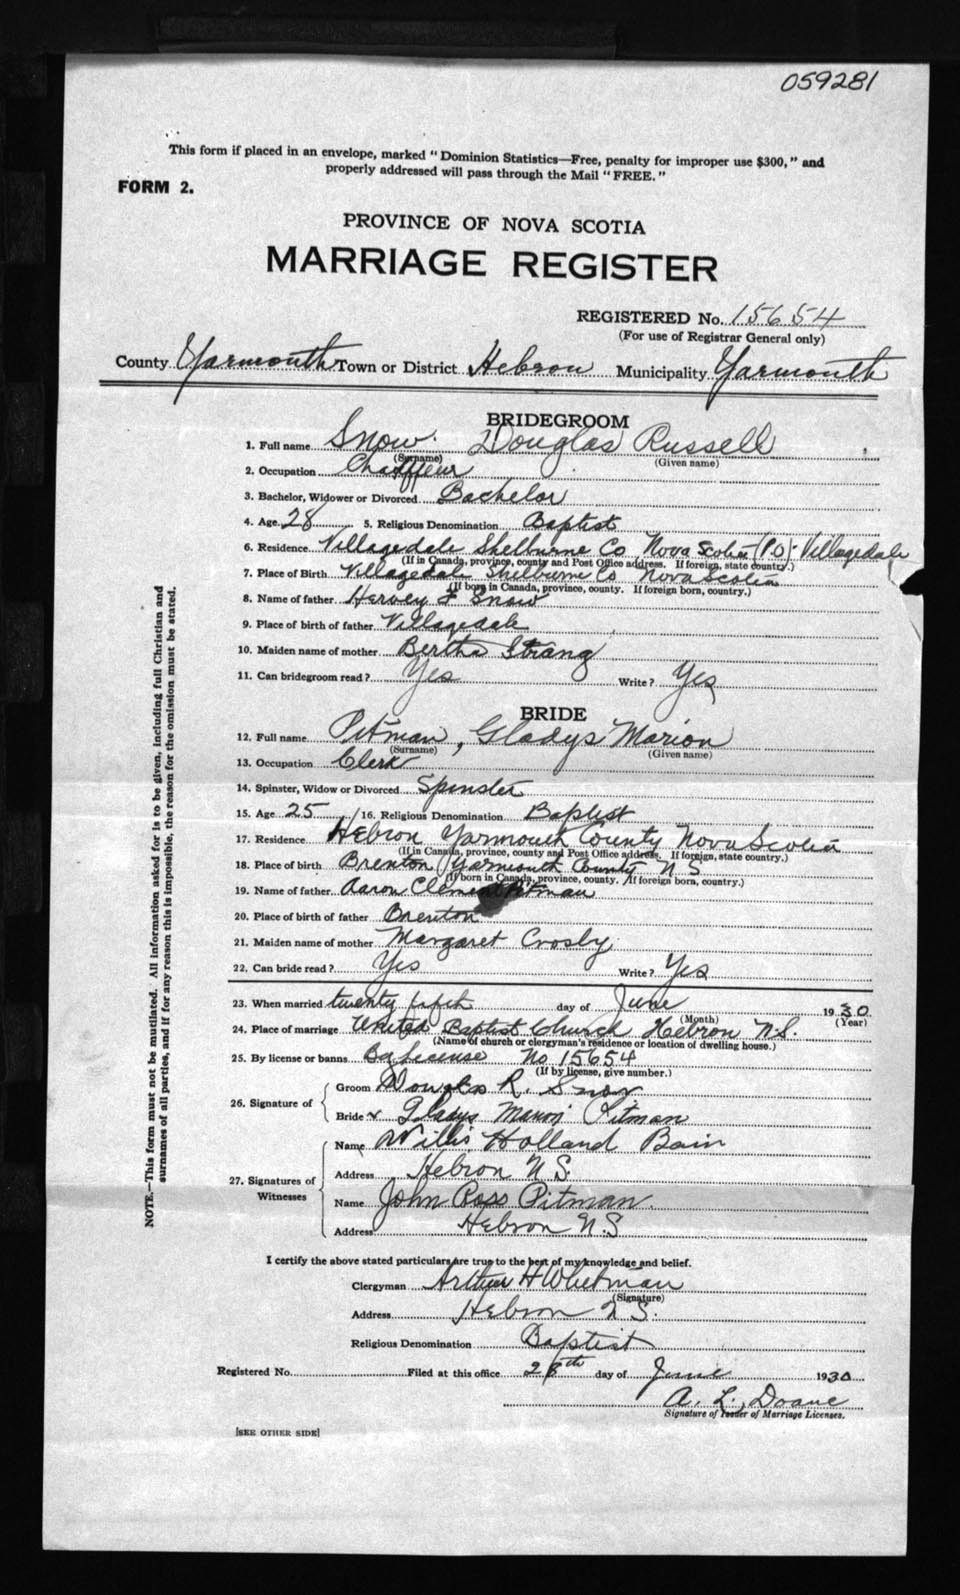 059281
This form if placed in an envelope, marked "Dominion Statistics—Free, penalty for improper use $300," and
properly addressed will pass through the Mail "FREE."
FORM 2.
PROVINCE OF NOVA SCOTIA
MARRIAGE REGISTER
REGISTERED No. 15654
(For use of Registrar General only)
County Yarmouth Town or District Hebron Municipality Yarmouth
BRIDEGROOM
1. Full name Snow Douglas Russell
(Surname) (Given name)
2. Occupation Chauffeur
3. Bachelor, Widower or Divorced Bachelor
4. Age 28 5. Religious Denomination Baptist
6. Residence Villagedale Shelburne Co Nova Scotia (P.O) Villagedale
(If in Canada, province, county and Post Office address. If foreign, state country.)
7. Place of Birth Villagedale Shelburne Co Nova Scotia
(If born in Canada, province, county. If foreign born, country.)
8. Name of father Hervey F Snow
9. Place of birth of father Villagedale
10. Maiden name of mother Bertha Strang
11. Can bridegroom read? Yes Write? Yes
BRIDE
12. Full name Pitman, Gladys Marion
(Surname) (Given name)
13. Occupation Clerk
14. Spinster, Widow or Divorced Spinster
15. Age 25 16. Religious Denomination Baptist
17. Residence Hebron Yarmouth County Nova Scotia
(If in Canada, province, county and Post Office address. If foreign, state country.)
18. Place of birth Brenton Yarmouth County N S
(If born in Canada, province, county. If foreign born, country.)
19. Name of father Aaron Clement Pitman
20. Place of birth of father Brenton
21. Maiden name of mother Margaret Crosby
22. Can bride read? Yes Write? Yes
23. When married twenty fifth day of June 1930
(Month) (Year)
24. Place of marriage United Baptist Church Hebron N.S.
(Name of church or clergyman's residence or location of dwelling house.)
25. By license or banns By License No 15654
(If by license, give number.)
26. Signature of Groom Douglas R. Snow
Bride Gladys Marion Pitman
27. Signatures of Witnesses Name Willis Holland Bain
Address Hebron N.S.
Name John Ross Pitman.
Address Hebron N.S
I certify the above stated particulars are true to the best of my knowledge and belief.
Clergyman Arthur H Whitman
(Signature)
Address Hebron N S.
Religious Denomination Baptist
Registered No. Filed at this office 28th day of June 1930
A. L. Doane
Signature of Issuer of Marriage Licenses.
[SEE OTHER SIDE]
NOTE.—This form must not be mutilated. All information asked for is to be given, including full Christian and
surnames of all parties, and if for any reason this is impossible, the reason for the omission must be stated.